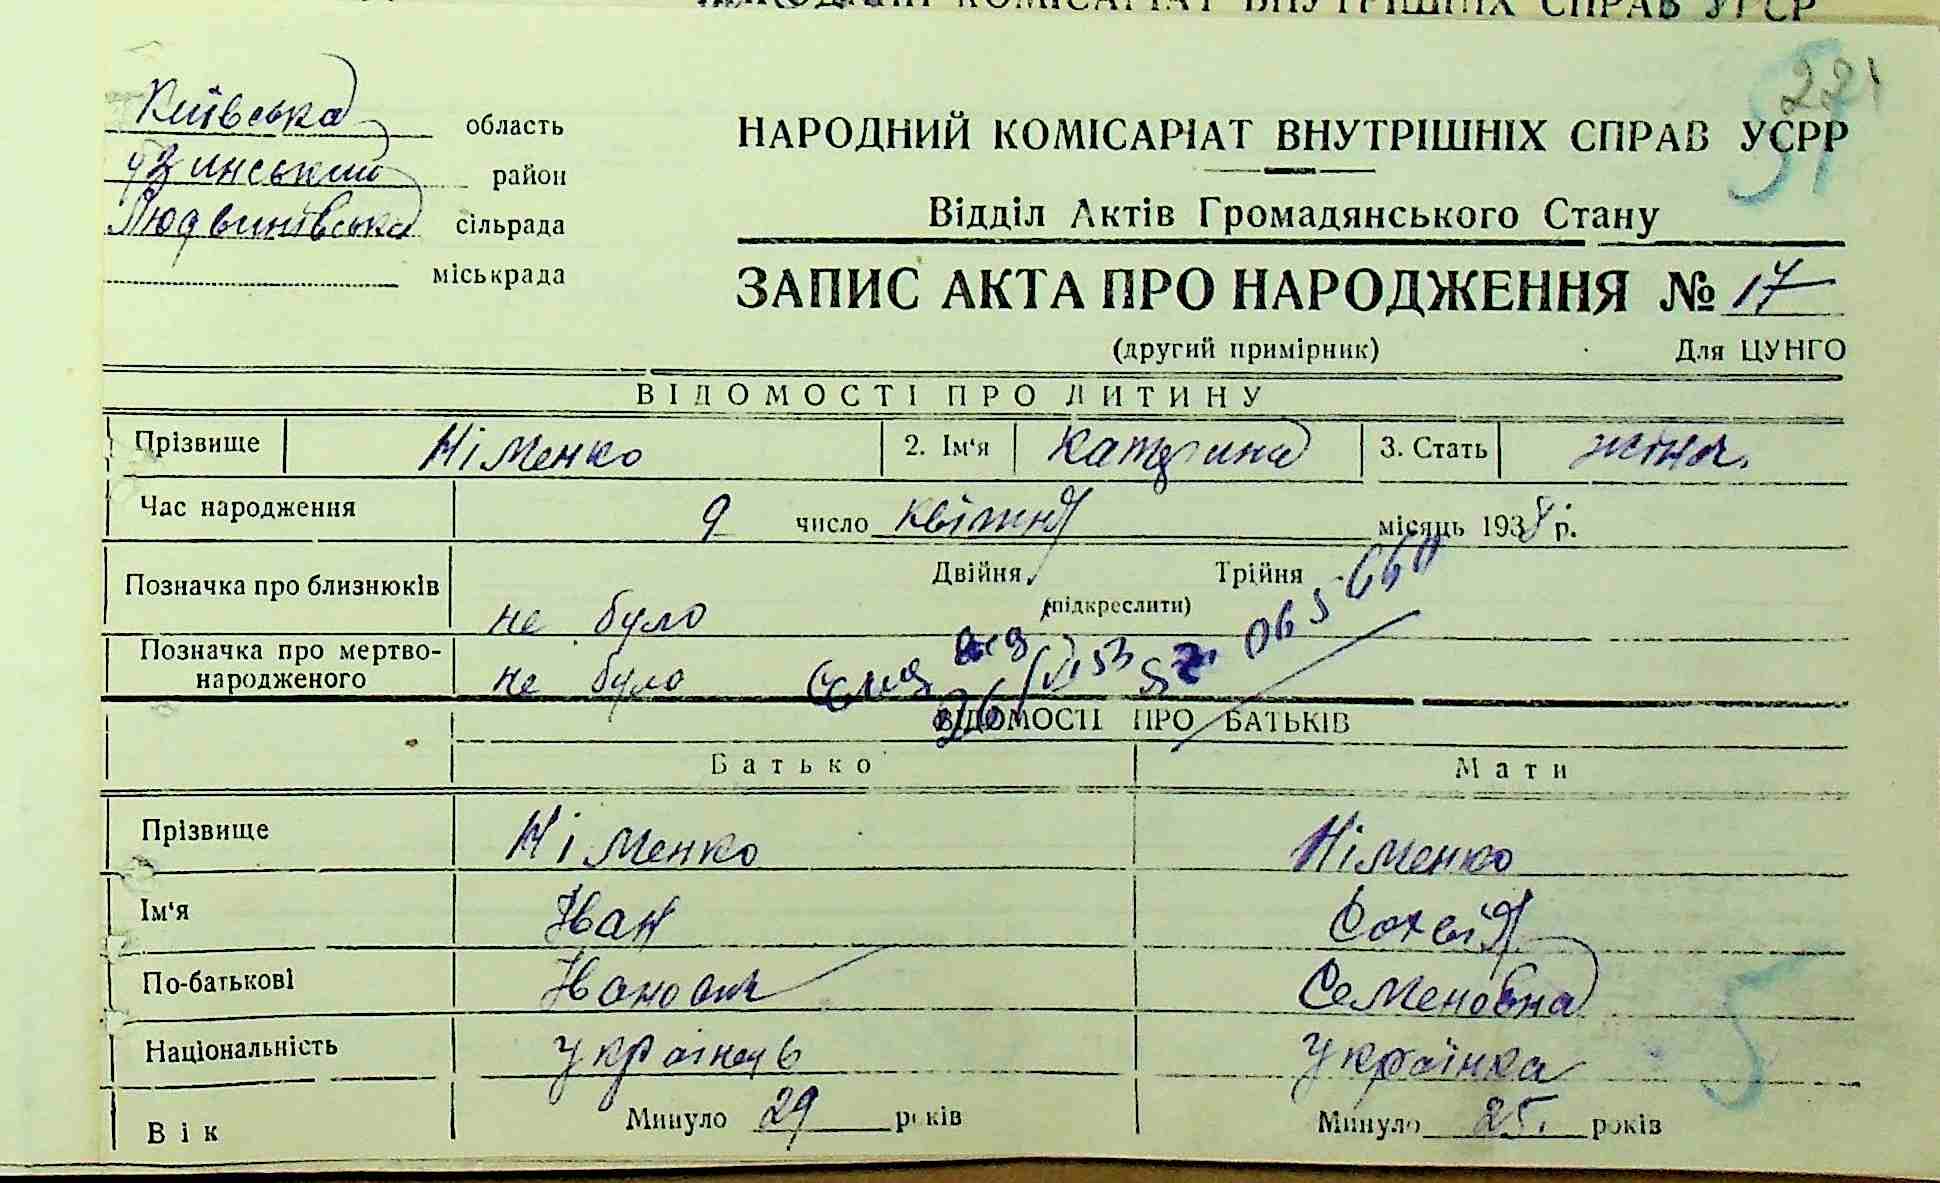 НАРОДНИЙ КОМІСАРІАТ ВНУТРІШНІХ СПРАВ УРСР
221
51
Київська область
Узинський район
Людвинівська сільрада
міськрада
НАРОДНИЙ КОМІСАРІАТ ВНУТРІШНІХ СПРАВ УСРР
Відділ Актів Громадянського Стану
ЗАПИС АКТА ПРО НАРОДЖЕННЯ № 17
(другий примірник) Для ЦУНГО
ВІДОМОСТІ ПРО ДИТИНУ
Прізвище Німенко 2. Ім'я Катерина 3. Стать жіноч.
Час народження 9 число квітня місяць 1938 р.
Позначка про близнюків не було Двійня, Трійня
(підкреслити)
Позначка про мертво-
народженого не було
ВІДОМОСТІ ПРО БАТЬКІВ
Батько Мати
Прізвище Німенко Німенко
Ім'я Іван Софія
По-батькові Іванович Семеновна
Національність українець українка
5
Вік Минуло 29 років Минуло 25. років